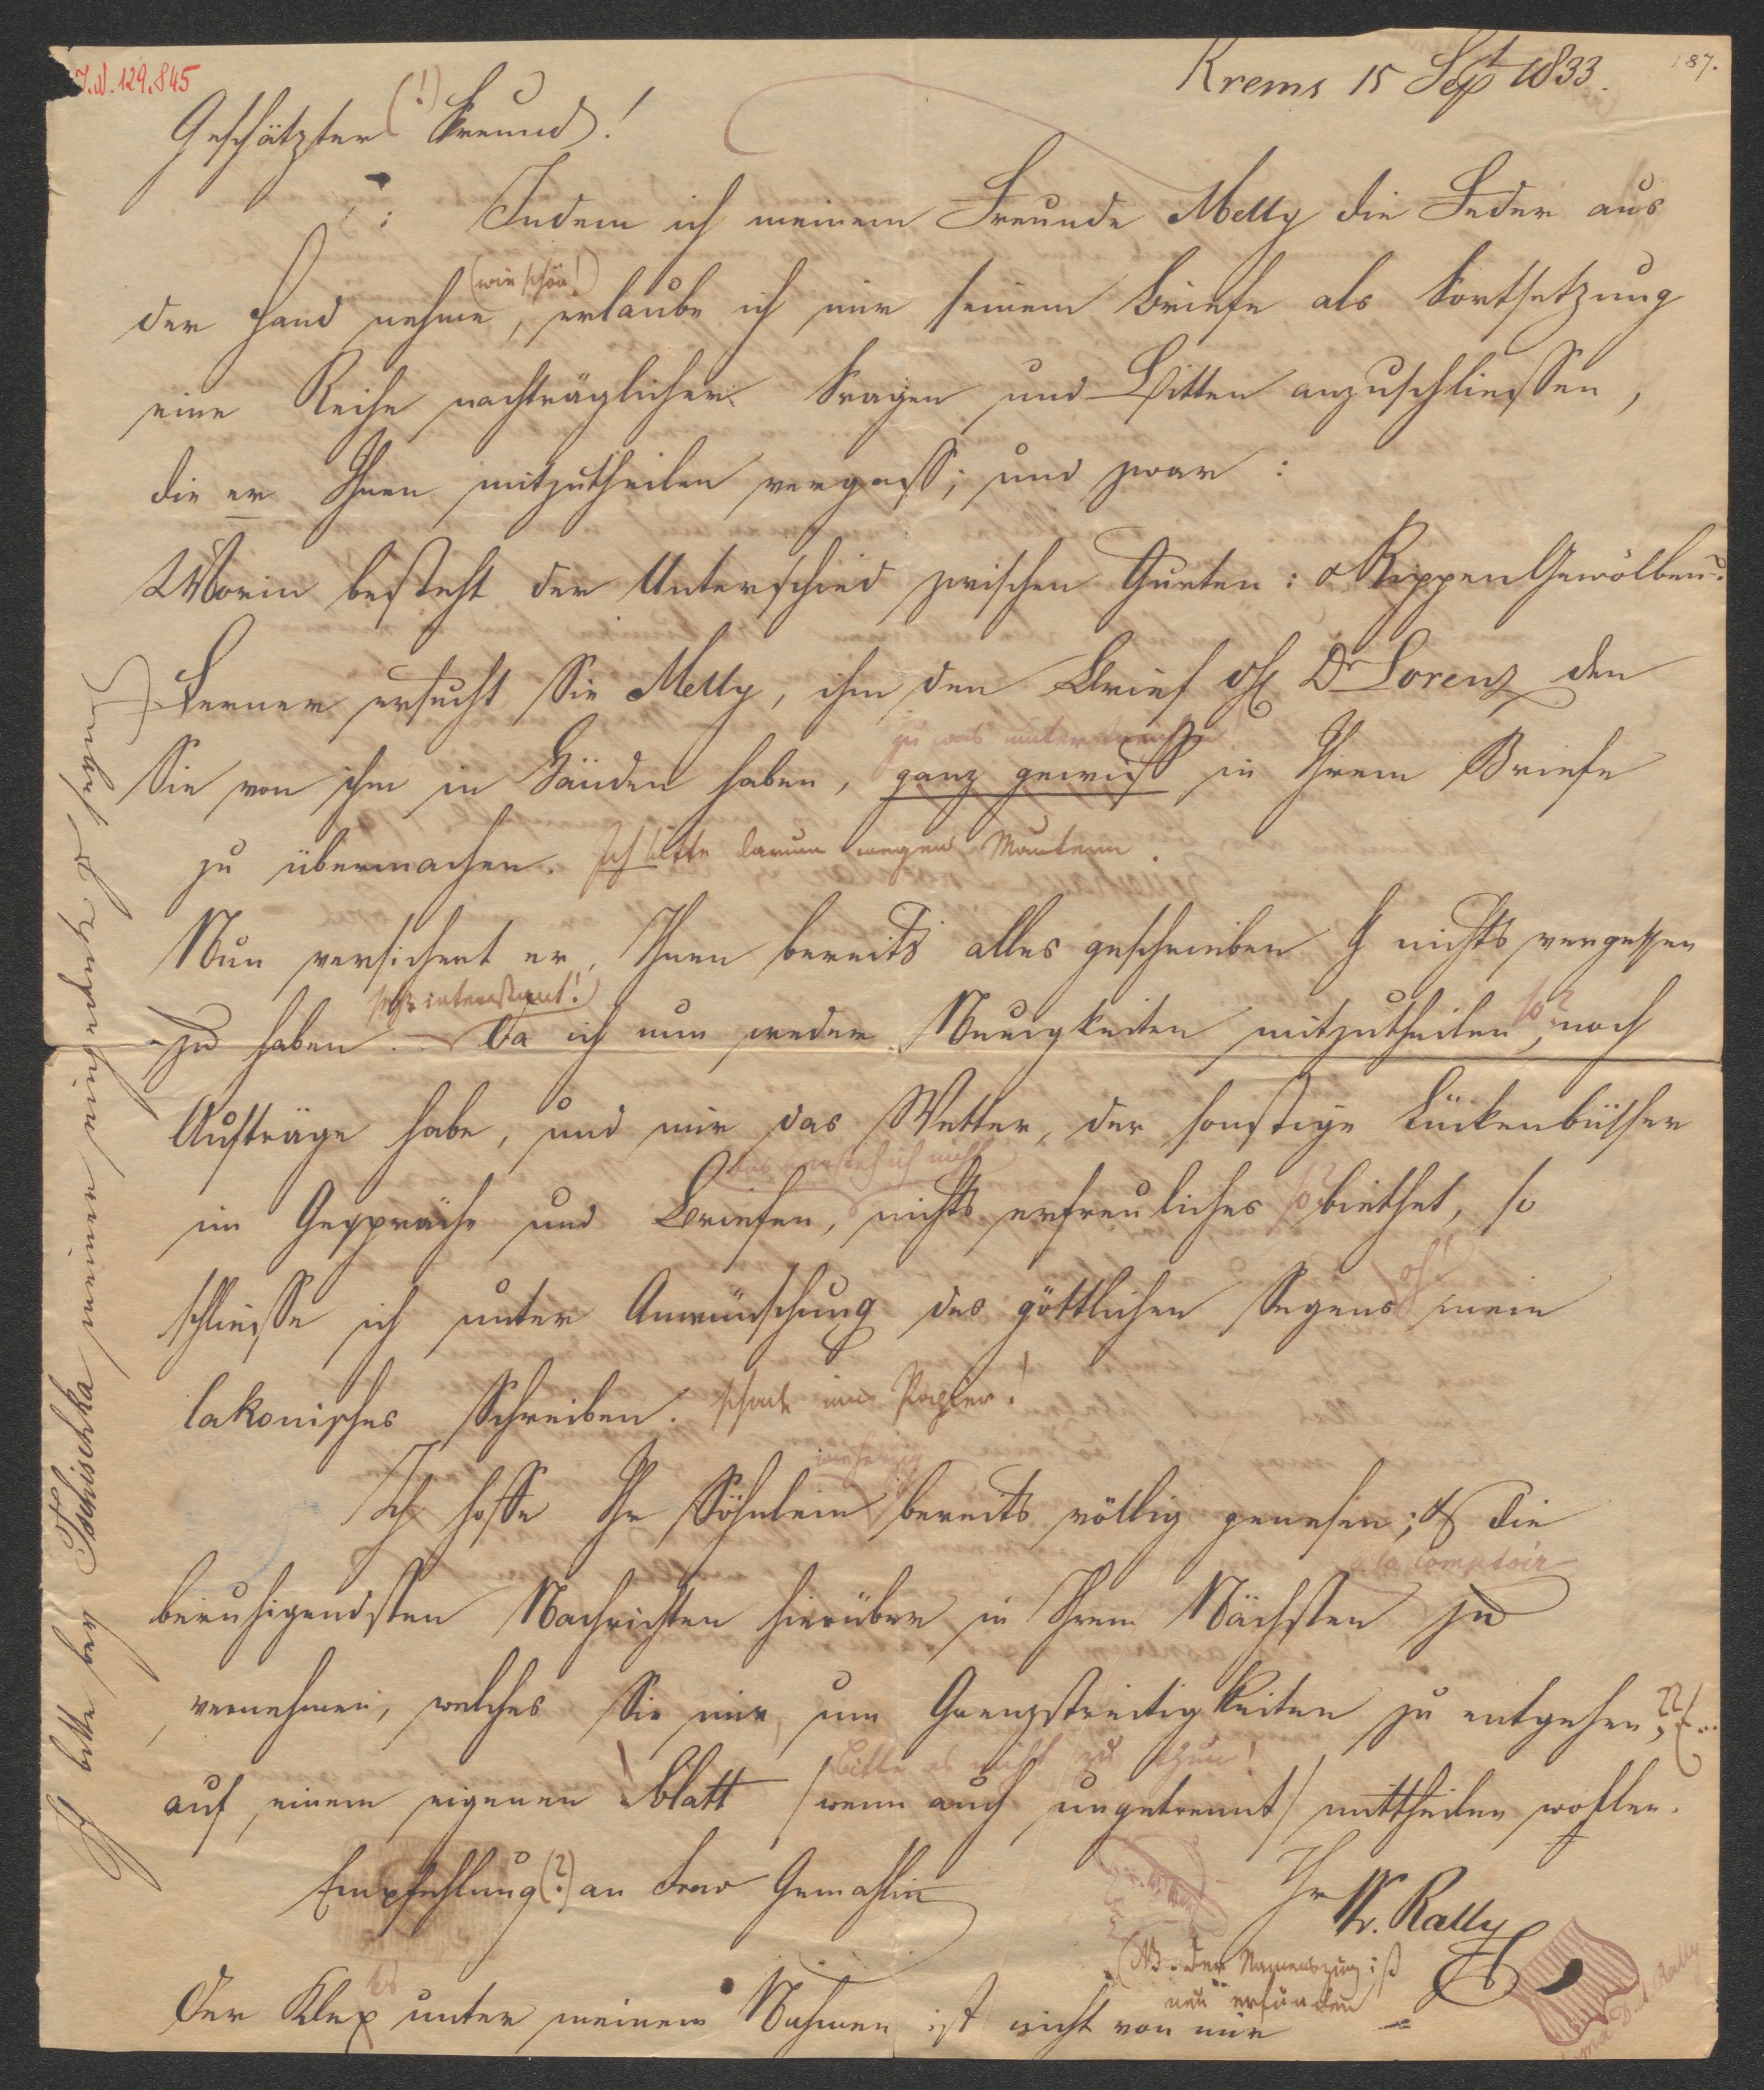 Krems 15 Sept 1833.
187.
I.N. 129.845
Geschätzter (!) Freund!
Indem ich meinem Freunde Melly die Feder aus
(wie schön!)
der Hand nehme, erlaube ich mir seinem Briefe als Fortsetzung
eine Reihe nachträglicher Fragen und Bitten anzuschliessen,
die er Ihnen mitzutheilen vergass; und zwar:
Worin besteht der Unterschied zwischen Gurten: & Rippen Gewölben.
Ferner ersucht Sie Melly, ihm den Brief Dr Lorenz den
Sie von ihm in Händen haben, ganz gewiß in Ihrem Briefe
zu übermachen. Ich bitte darum wegen Mautern.
Nun versichert er, Ihnen bereits alles geschrieben & nichts vergessen
sehr interessant!
zu haben. Da ich nun weder Neuigkeiten mitzutheilen, noch
Aufträge habe, und mir das Wetter, der sonstige Lückenbüsser
das versteh ich nicht
im Gespräche und Briefen, nichts erfreuliches biethet, so
schliesse ich unter Anwünschung des göttlichen Segens mein
lakonisches Schreiben. schade ums Papier!
Ich hoffe Ihr Söhnlein bereits völlig genesen; & die
a la Comptoir
beruhigendsten Nachrichten hierüber in Ihrem Nächsten zu
vernehmen, welches Sie mir, um Grenzstreitigkeiten zu entgehen,
bitte es nicht zu thun!
auf einem eigenen Blatt /wenn auch ungetrennt/ mittheilen wollen.
Empfehlung (?) an Frau Gemahlin
Ihr
W. Rally
(NB. der Namenszug ist
neu erfunden
Der Klex unter meinem Nahmen ist nicht von mir
Ich bitte bey Tschischka meiner eingedenk zu seyn